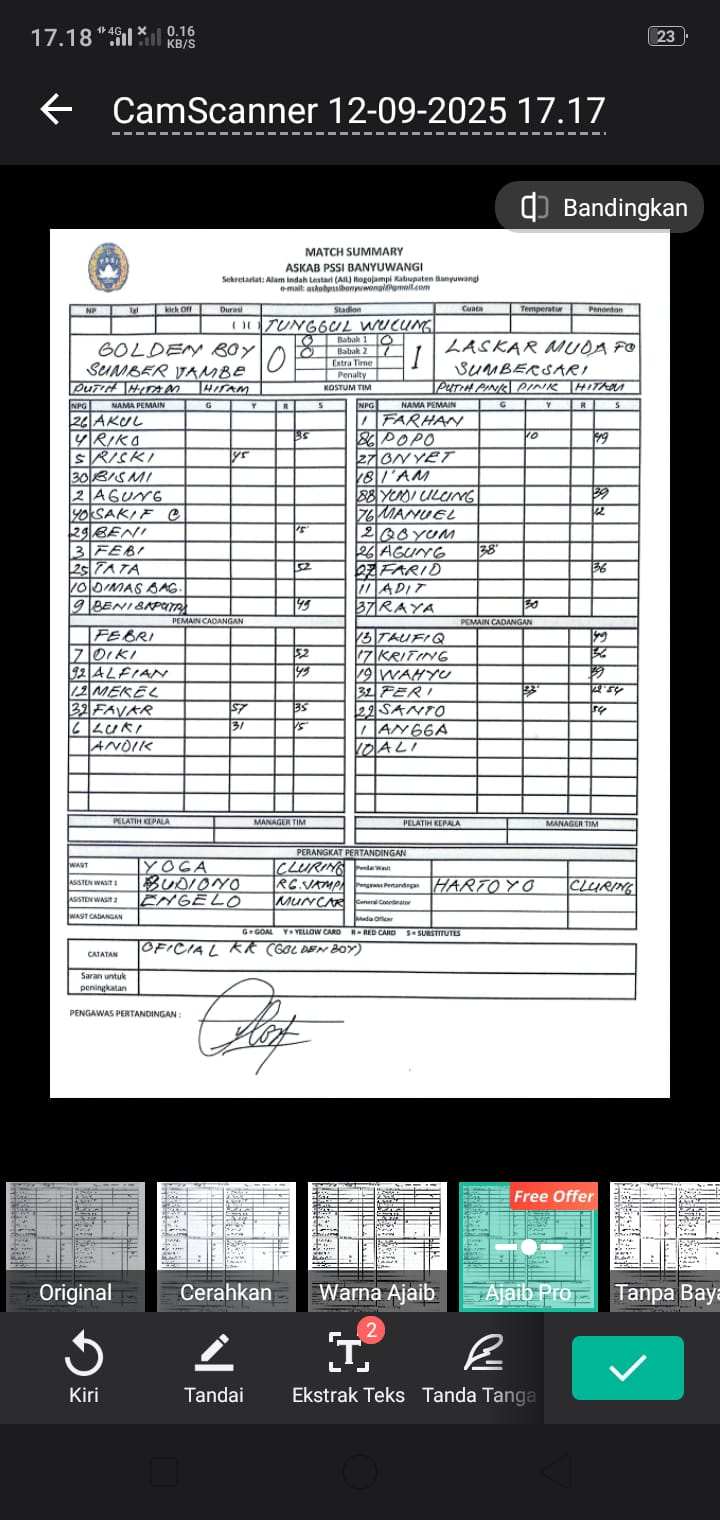 17.18 4G 0.16 KB/S 23
CamScanner 12-09-2025 17.17
Bandingkan
PSSI
MATCH SUMMARY
ASKAB PSSI BANYUWANGI
Sekretariat: Alam Indah Lestari (AIL) Rogojampi Kabupaten Banyuwangi
e-mail: askabpssibanyuwangi@gmail.com
NP Tgl kick Off Durasi Stadion Cuaca Temperatur Penonton
TUNGGUL WULUNG
GOLDEN BOY 0 0 Babak 1 0 1 LASKAR MUDA FC
SUMBER JAMBE 0 Babak 2 1 SUMBERSARI
Extra Time
Penalty
PUTIH HITAM HITAM KOSTUM TIM PUTIH PINK PINK HITAM
NPG NAMA PEMAIN G Y R S NPG NAMA PEMAIN G Y R S
26 AKUL 1 FARHAN
4 RIKO 35 86 POPO 10 49
5 RISKI 45 27 ONYET
30 BISMI 18 I'AM
2 AGUNG 88 YUDI ULUNG 39
40 SAKIF C 76 MANUEL 12
29 BENI 15' 2 QOYUM
3 FEBI 26 AGUNG 38'
25 TATA 52 27 FARID 36
10 DIMAS BAG. 11 ADIT
9 BENI SAPUTRA 49 37 RAYA 30
PEMAIN CADANGAN PEMAIN CADANGAN
FEBRI 15 TAUFIQ 49
7 DIKI 52 17 KRITING 36
92 ALFIAN 49 19 WAHYU 39
12 MEKEL 32 FERI 12' 54
32 FAVAR 57 35 22 SANTO 54
6 LUKI 31 15' 1 ANGGA
ANDIK 10 ALI
PELATIH KEPALA MANAGER TIM PELATIH KEPALA MANAGER TIM
PERANGKAT PERTANDINGAN
WASIT YOGA CLURING Penilai Wasit
ASISTEN WASIT 1 BUDIONO RG.JAMPI Pengawas Pertandingan HARTOYO CLURING
ASISTEN WASIT 2 ENGELO MUNCAR General Coordinator
WASIT CADANGAN Media Officer
G = GOAL Y = YELLOW CARD R = RED CARD S = SUBSTITUTES
CATATAN OFICIAL KK (GOLDEN BOY)
Saran untuk
peningkatan
PENGAWAS PERTANDINGAN :
Free Offer
Original Cerahkan Warna Ajaib Ajaib Pro Tanpa Baya
2
Kiri Tandai Ekstrak Teks Tanda Tanga